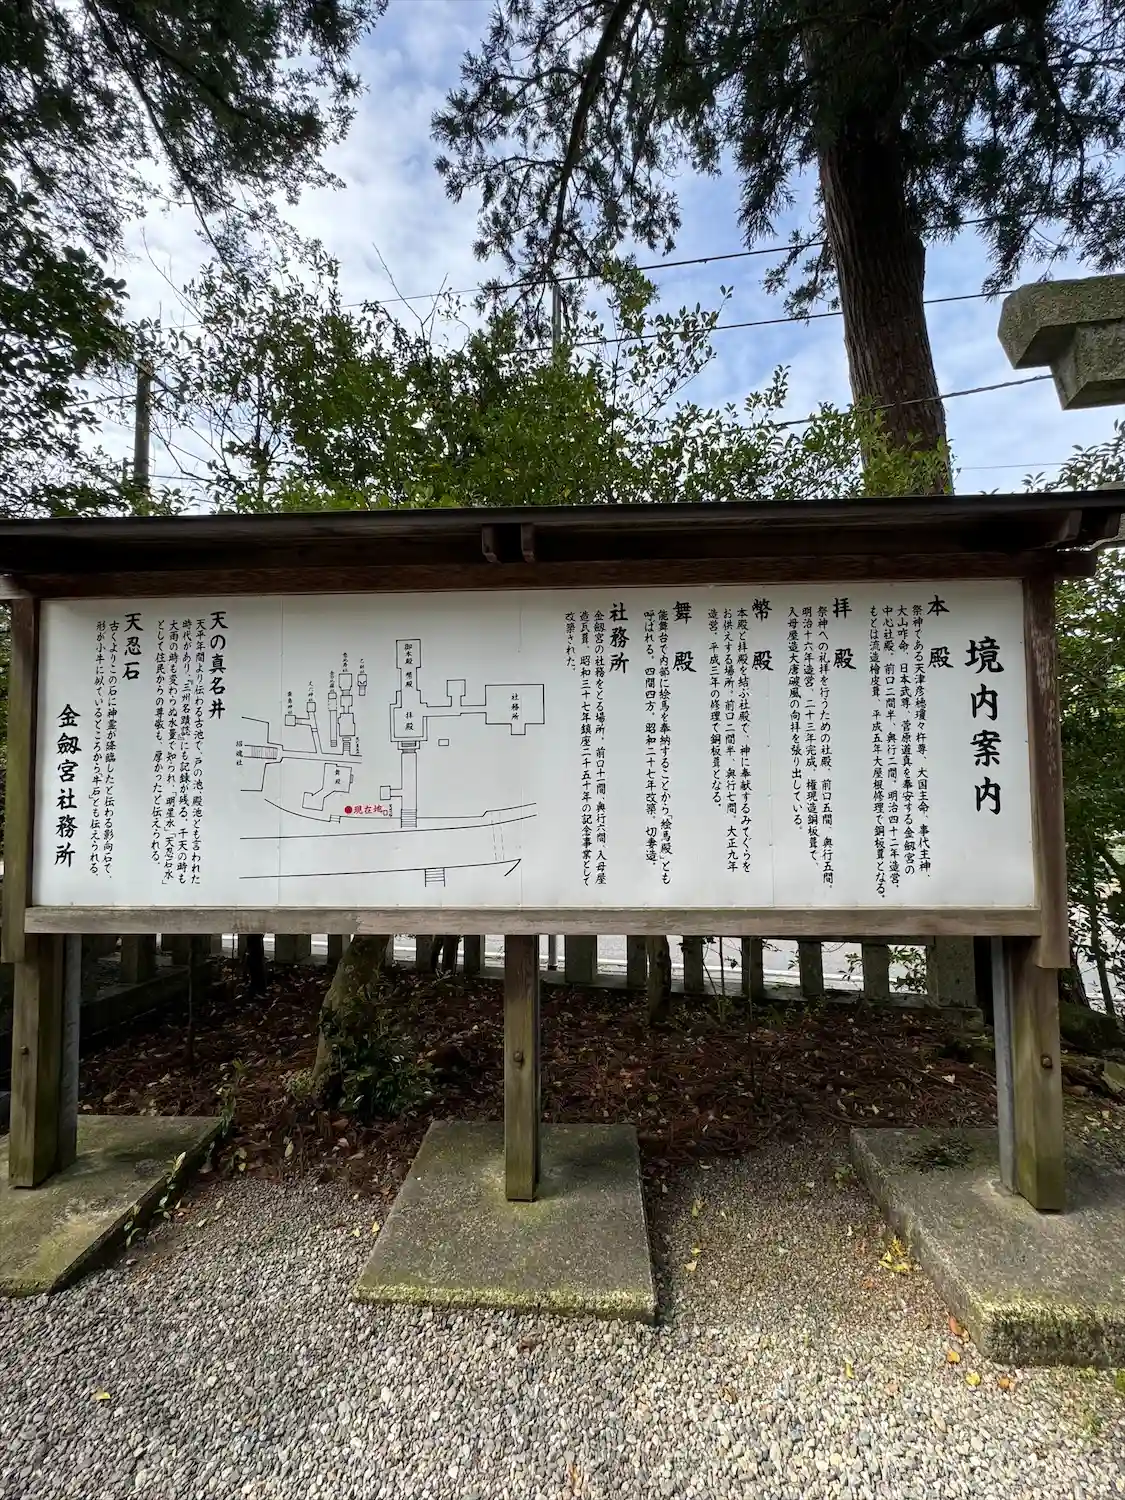 境内案内
本殿
祭神である天津彦穂瓊々杵尊、大国主命、事代主神、
大山咋命、日本武尊、菅原道真を奉安する金劔宮の
中心社殿、前口二間半、奥行二間。明治四十二年造営。
もとは流造檜皮葺、平成五年大屋根修理で銅板葺となる。
拝殿
祭神への礼拝を行うための社殿、前口五間、奥行五間。
明治十六年造営、二十三年完成。権現造銅板葺で、
入母屋造大唐破風の向拝を張り出している。
幣殿
本殿と拝殿を結ぶ社殿で、神に奉献するみてぐらを
お供えする場所。前口二間半、奥行七間。大正九年
造営。平成三年の修理で銅板葺となる。
舞殿
能舞台で内部に絵馬を奉納することから「絵馬殿」とも
呼ばれる。四間四方、昭和二十七年改築、切妻造。
社務所
金劔宮の社務をとる場所。前口十一間、奥行六間、入母屋
造瓦葺。昭和三十七年鎮座二千五十年の記念事業として
改築された。
御本殿
幣殿
拝殿
社務所
舞殿
招魂社
●現在地
天の真名井
天平年間より伝わる古池で、戸の池、殿池とも言われた
時代があり、『三州名蹟誌』にも記録が残る。干天の時も
大雨の時も変わらぬ水量で知られ、「明星水」「天忍石水」
として住民からの尊敬も、厚かったと伝えられる。
天忍石
古くよりこの石に神霊が降臨したと伝わる影向石で、
形が小牛に似ているところから牛石とも伝えられる。
金劔宮社務所